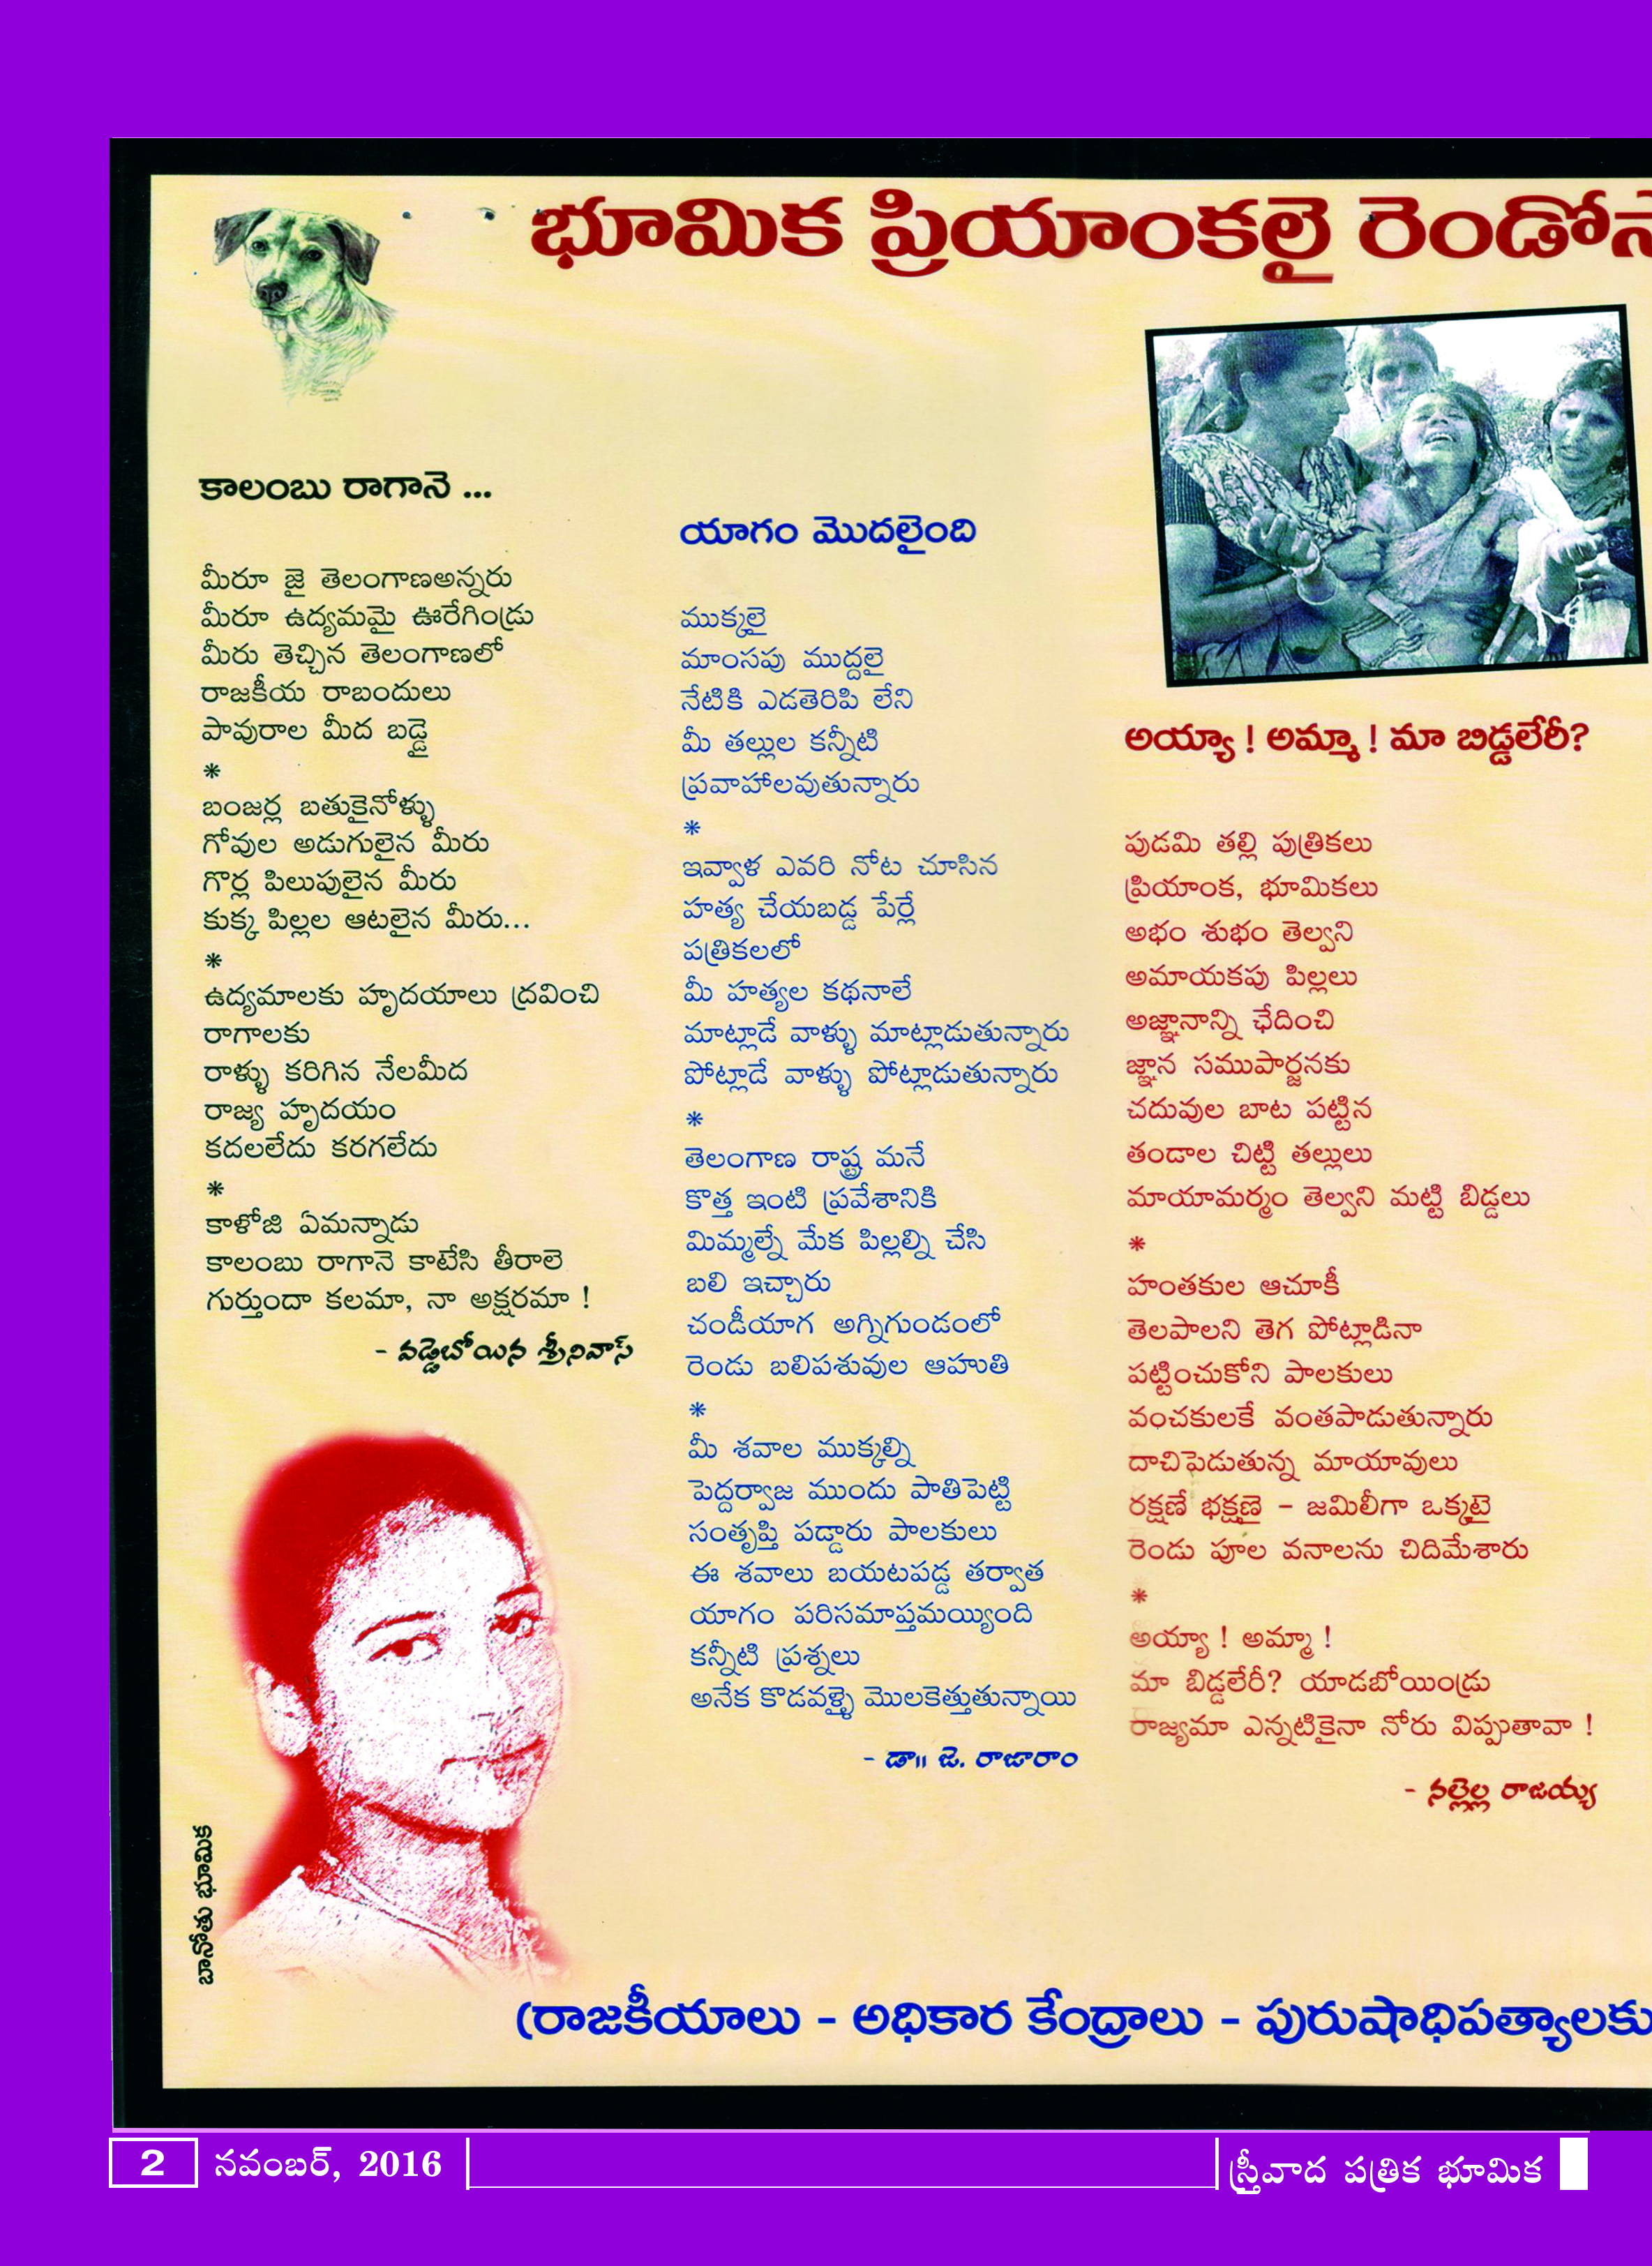 భూమిక ప్రియాంకలై రెండో
కాలంబు రాగానె ...
మీరూ జై తెలంగాణఅన్నరు
మీరూ ఉద్యమమై ఊరేగిండ్రు
మీరు తెచ్చిన తెలంగాణలో
రాజకీయ రాబందులు
పావురాల మీద బడ్డై
*
బంజర్ల బతుకైనోళ్ళు
గోవుల అడుగులైన మీరు
గొర్ల పిలుపులైన మీరు
కుక్క పిల్లల ఆటలైన మీరు...
*
ఉద్యమాలకు హృదయాలు ద్రవించి
రాగాలకు
రాళ్ళు కరిగిన నేలమీద
రాజ్య హృదయం
కదలలేదు కరగలేదు
*
కాళోజి ఏమన్నాడు
కాలంబు రాగానె కాటేసి తీరాలె
గుర్తుందా కలమా, నా అక్షరమా !
- వడ్డెబోయిన శ్రీనివాస్
బానోతు భూమిక
యాగం మొదలైంది
ముక్కలై
మాంసపు ముద్దలై
నేటికి ఎడతెరిపి లేని
మీ తల్లుల కన్నీటి
ప్రవాహాలవుతున్నారు
*
ఇవ్వాళ ఎవరి నోట చూసిన
హత్య చేయబడ్డ పేర్లే
పత్రికలలో
మీ హత్యల కథనాలే
మాట్లాడే వాళ్ళు మాట్లాడుతున్నారు
పోట్లాడే వాళ్ళు పోట్లాడుతున్నారు
*
తెలంగాణ రాష్ట్ర మనే
కొత్త ఇంటి ప్రవేశానికి
మిమ్మల్నే మేక పిల్లల్ని చేసి
బలి ఇచ్చారు
చండీయాగ అగ్నిగుండంలో
రెండు బలిపశువుల ఆహుతి
*
మీ శవాల ముక్కల్ని
పెద్దర్వాజ ముందు పాతిపెట్టి
సంతృప్తి పడ్డారు పాలకులు
ఈ శవాలు బయటపడ్డ తర్వాత
యాగం పరిసమాప్తమయ్యింది
కన్నీటి ప్రశ్నలు
అనేక కొడవళ్ళై మొలకెత్తుతున్నాయి
- డా॥ జె. రాజారాం
అయ్యా ! అమ్మా ! మా బిడ్డలేరీ?
పుడమి తల్లి పుత్రికలు
ప్రియాంక, భూమికలు
అభం శుభం తెల్వని
అమాయకపు పిల్లలు
అజ్ఞానాన్ని ఛేదించి
జ్ఞాన సముపార్జనకు
చదువుల బాట పట్టిన
తండాల చిట్టి తల్లులు
మాయామర్మం తెల్వని మట్టి బిడ్డలు
*
హంతకుల ఆచూకీ
తెలపాలని తెగ పోట్లాడినా
పట్టించుకోని పాలకులు
వంచకులకే వంతపాడుతున్నారు
దాచిపెడుతున్న మాయావులు
రక్షణే భక్షణై - జమిలీగా ఒక్కటై
రెండు పూల వనాలను చిదిమేశారు
*
అయ్యా ! అమ్మా !
మా బిడ్డలేరీ? యాడబోయిండ్రు
రాజ్యమా ఎన్నటికైనా నోరు విప్పుతావా !
- నల్లెల్ల రాజయ్య
(రాజకీయాలు - అధికార కేంద్రాలు - పురుషాధిపత్యాలకు
2 నవంబర్, 2016
స్త్రీవాద పత్రిక భూమిక